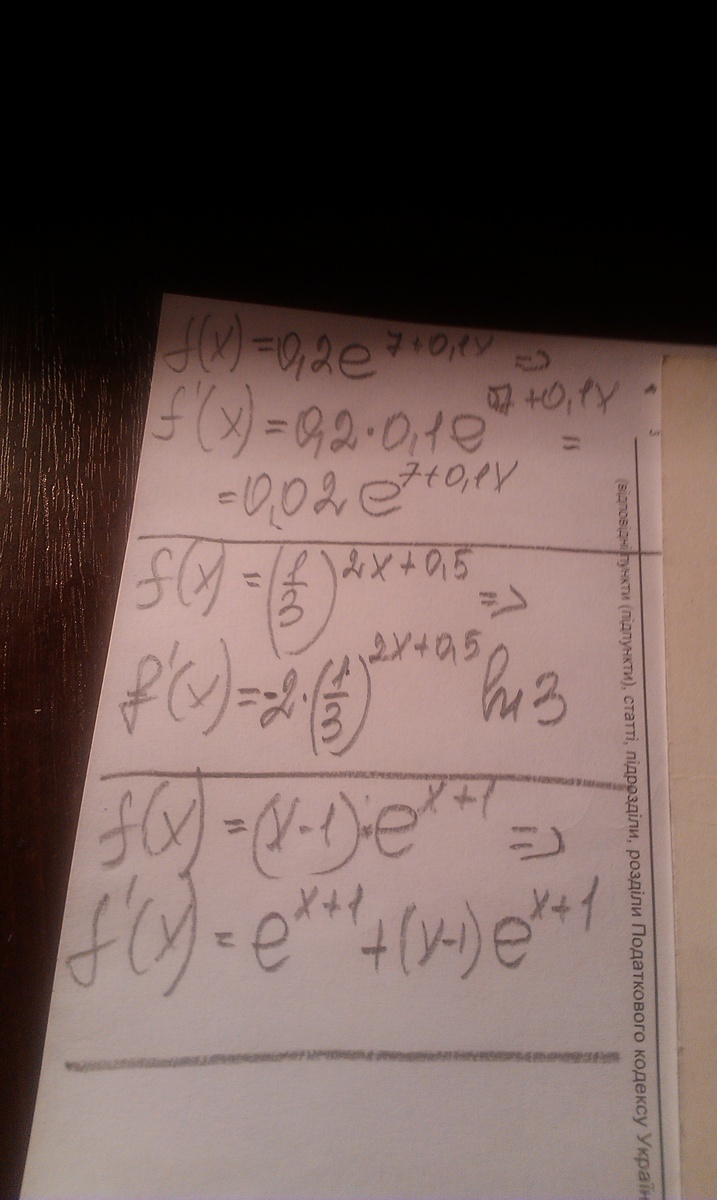 f(x) = 0,2e^{7+0,1x} =>
f'(x) = 0,2·0,1e^{7+0,1x} =
= 0,02 e^{7+0,1x}
f(x) = (1/3)^{2x+0,5} =>
f'(x) = -2·(1/3)^{2x+0,5} ln 3
f(x) = (x-1)·e^{x+1} =>
f'(x) = e^{x+1} + (x-1) e^{x+1}
(відповідні пункти (підпункти), статті, підрозділи, розділи Податкового кодексу Украї